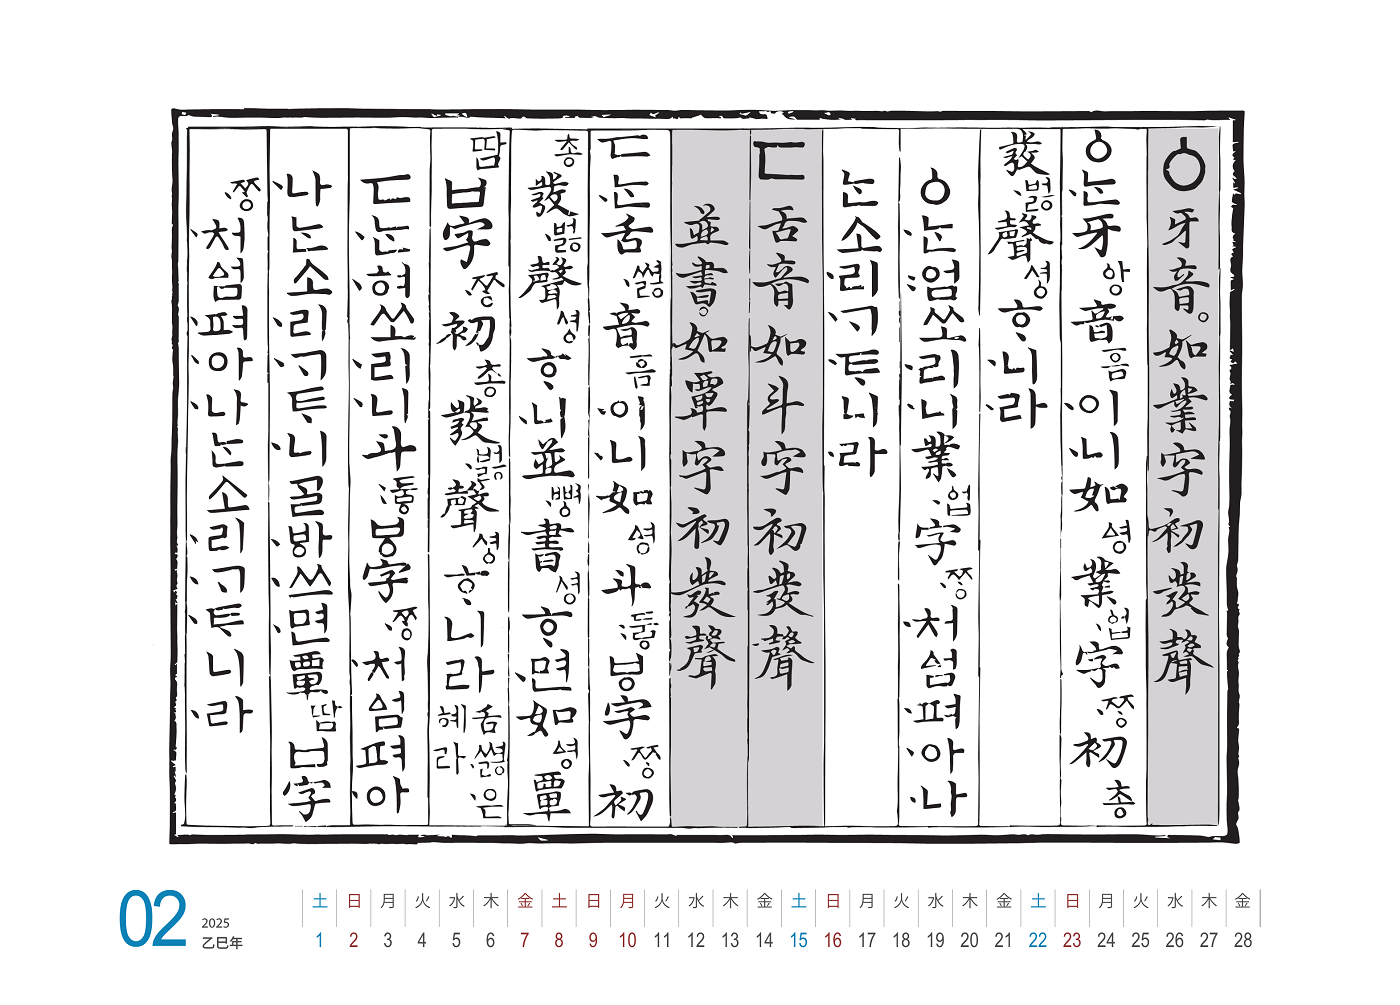 ㆁ 牙音。如業字初發聲
ㆁ·ᄂᆞᆫ牙ᅌᅡᆼ音ᅙᅳᆷ·이·니如ᅀᅧᆼ業·ᅌᅥᆸ字·ᄍᆞᆼ初총
發·벓聲셩ᄒᆞ·니·라
ㆁ·ᄂᆞᆫ:엄쏘·리·니業·ᅌᅥᆸ字·ᄍᆞᆼ·처ᅀᅥᆷ·펴·아·나
ᄂᆞᆫ소·리·ᄀᆞ·ᄐᆞ·니·라
ㄷ 舌音如斗字初發聲
並書。如覃字初發聲
ㄷ·ᄂᆞᆫ舌·쎯音ᅙᅳᆷ·이·니如ᅀᅧᆼ斗:두ᇢㅸ字·ᄍᆞᆼ初
총發·벓聲셩ᄒᆞ·니並·뼝書셩ᄒᆞ·면如ᅀᅧᆼ覃
땀ㅂ字·ᄍᆞᆼ初총發·벓聲셩ᄒᆞ니라舌·쎯·은혜라
ㄷ·ᄂᆞᆫ·혀쏘·리·니斗:두ᇢㅸ字·ᄍᆞᆼ·처ᅀᅥᆷ펴·아
·나ᄂᆞᆫ소·리·ᄀᆞᄐᆞ·니ᄀᆞᆯ·ᄫᅡ·쓰·면覃땀ㅂ字
·ᄍᆞᆼ·처ᅀᅥᆷ·펴·아·나ᄂᆞᆫ소·리·ᄀᆞ·ᄐᆞ니·라
02
2025
乙巳年
土 日 月 火 水 木 金 土 日 月 火 水 木 金 土 日 月 火 水 木 金 土 日 月 火 水 木 金
1 2 3 4 5 6 7 8 9 10 11 12 13 14 15 16 17 18 19 20 21 22 23 24 25 26 27 28